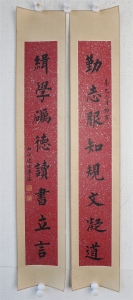 勤志服知規文凝道
緝學礪德讀書立言